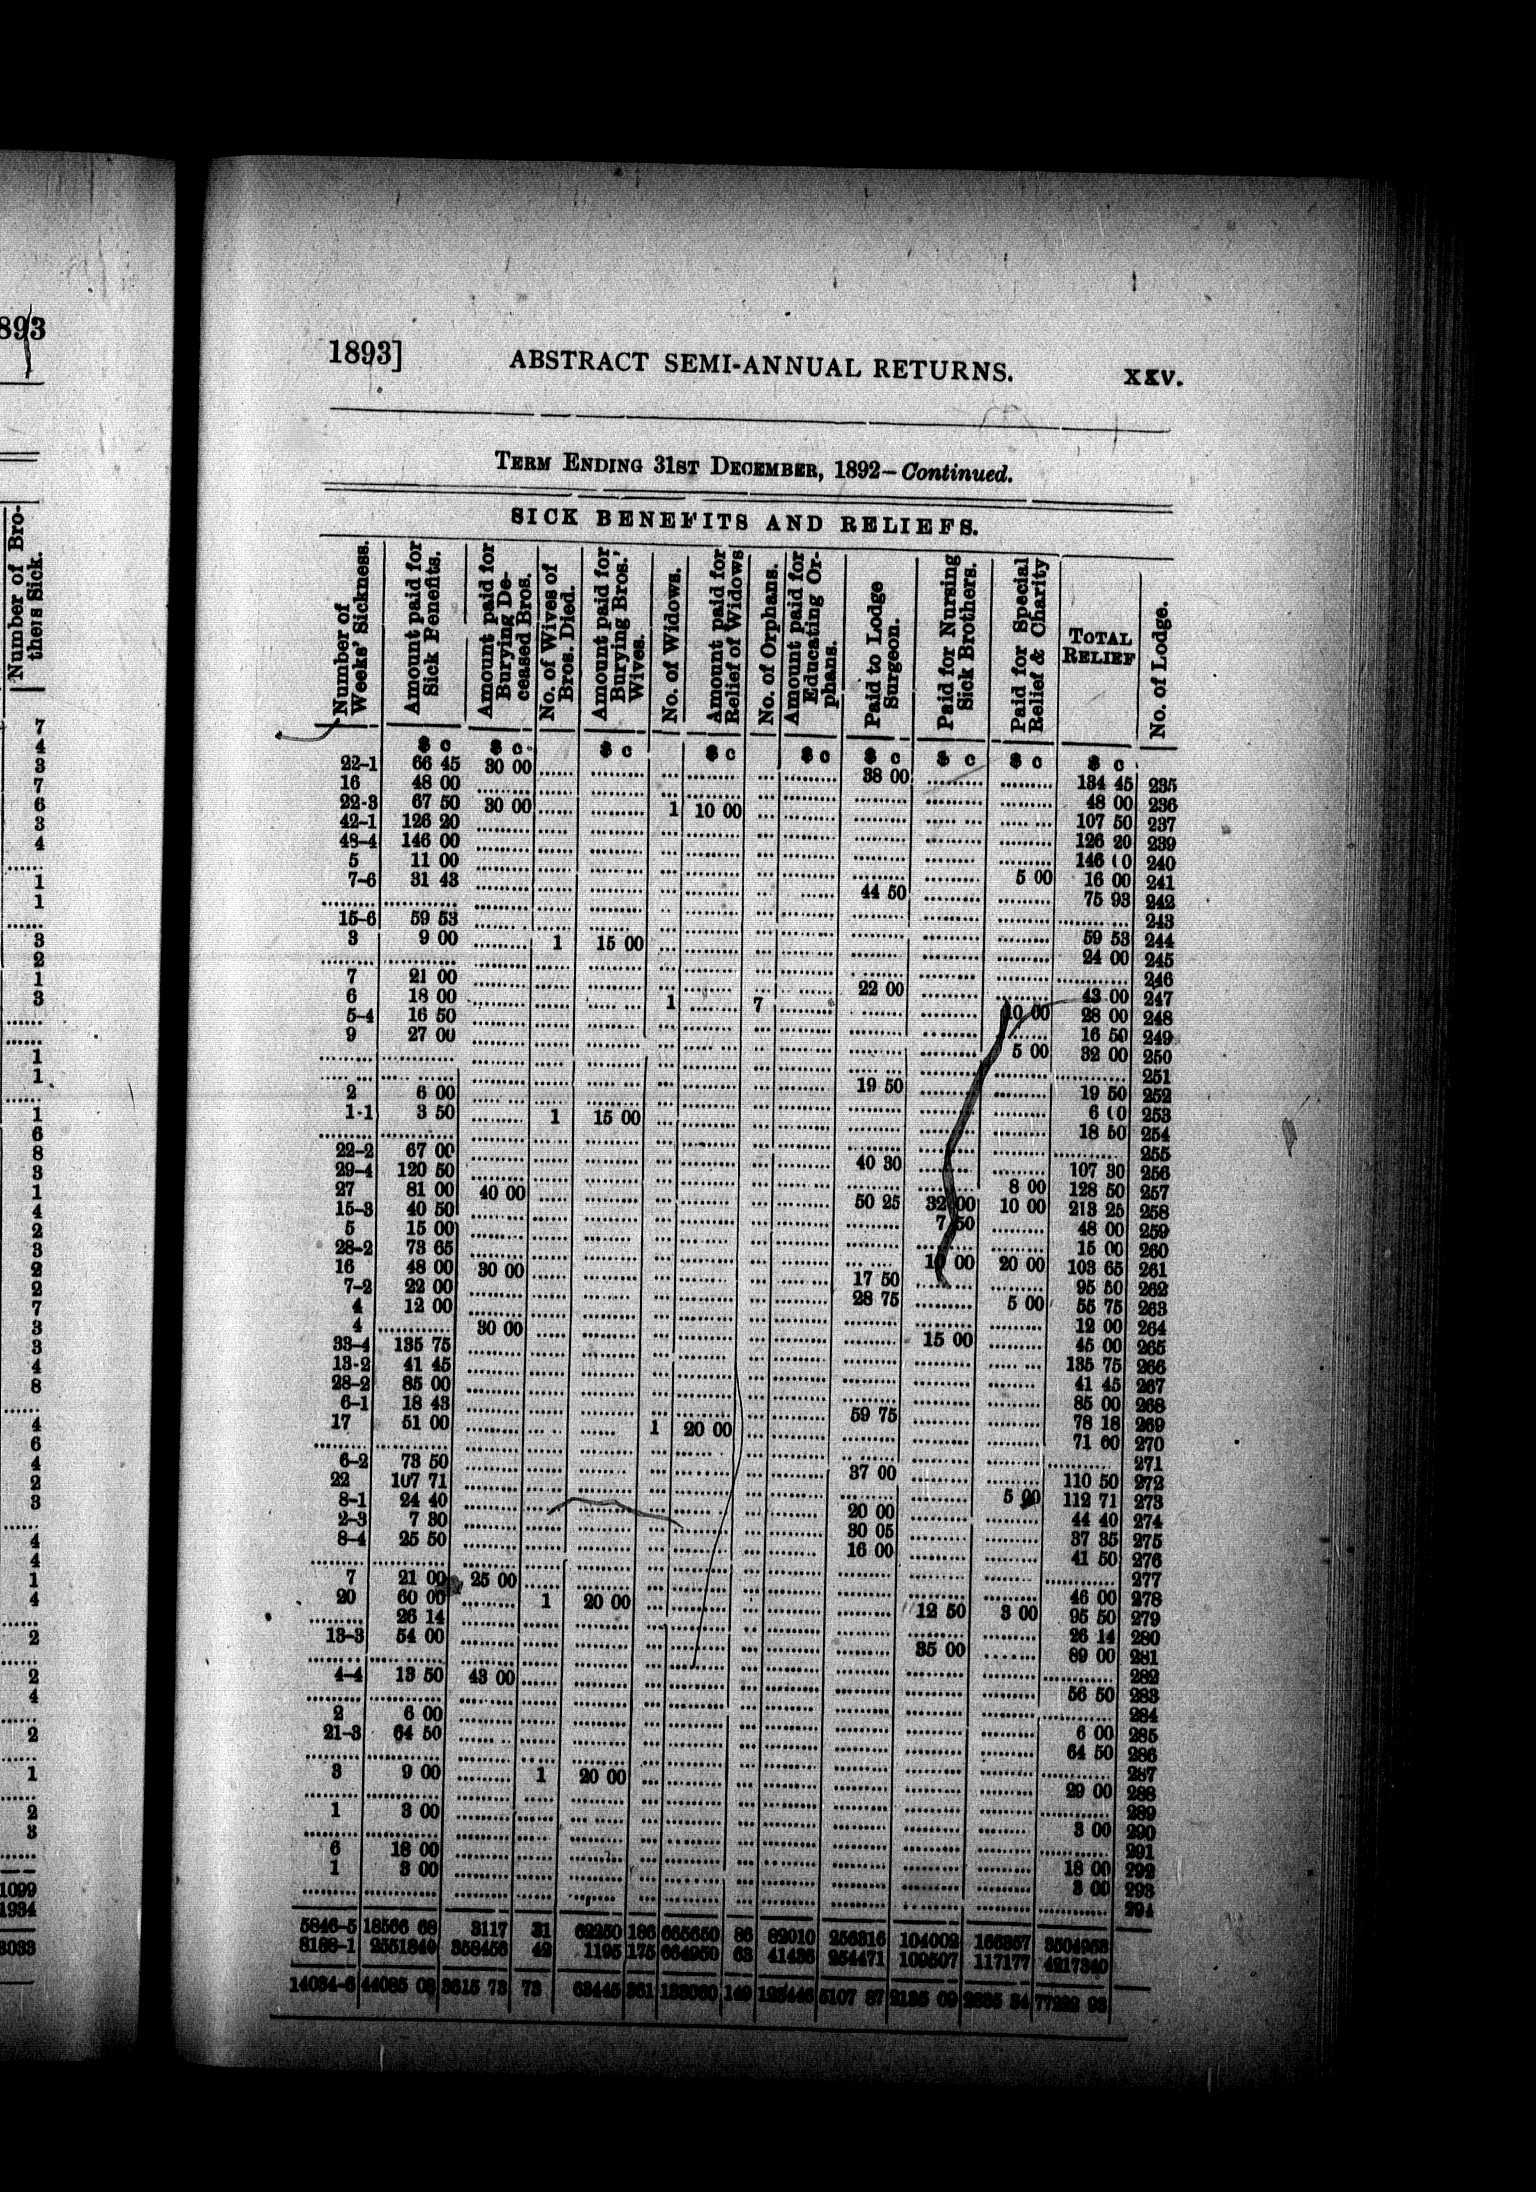 893
Number of Bro-
thers Sick.
7
4
3
7
6
3
4
......
1
1
......
3
2
1
3
......
......
1
1
......
1
6
8
3
1
4
2
3
2
2
7
3
3
4
8
......
4
6
4
2
3
......
4
4
1
4
......
2
......
2
4
......
2
......
1
......
2
3
......
1099
1934
3033
1893] ABSTRACT SEMI-ANNUAL RETURNS. xxv.
TERM ENDING 31ST DECEMBER, 1892—Continued.
SICK BENEFITS AND RELIEFS.
Number of Weeks' Sickness.
Amount paid for Sick Benefits.
Amount paid for Burying De-ceased Bros.
No. of Wives of Bros. Died.
Amount paid for Burying Bros.' Wives.
No. of Widows.
Amount paid for Relief of Widows
No. of Orphans.
Amount paid for Educating Or-phans.
Paid to Lodge Surgeon.
Paid for Nursing Sick Brothers.
Paid for Special Relief & Charity
TOTAL RELIEF
No. of Lodge.
$ c $ c $ c $ c $ c $ c $ c $ c $ c
22-1 66 45 30 00 38 00 134 45 235
16 48 00 48 00 236
22-3 67 50 30 00 1 10 00 107 50 237
42-1 126 20 126 20 239
48-4 146 00 146 00 240
5 11 00 5 00 16 00 241
7-6 31 43 44 50 75 93 242
243
15-6 59 53 59 53 244
3 9 00 1 15 00 24 00 245
246
7 21 00 22 00 43 00 247
6 18 00 1 7 10 00 28 00 248
5-4 16 50 16 50 249
9 27 00 5 00 32 00 250
251
19 50 19 50 252
2 6 00 6 00 253
1-1 3 50 1 15 00 18 50 254
255
22-2 67 00 40 30 107 30 256
29-4 120 50 8 00 128 50 257
27 81 00 40 00 50 25 32 00 10 00 213 25 258
15-3 40 50 7 50 48 00 259
5 15 00 15 00 260
28-2 73 65 10 00 20 00 103 65 261
16 48 00 30 00 17 50 95 50 262
7-2 22 00 28 75 5 00 55 75 263
4 12 00 12 00 264
4 30 00 15 00 45 00 265
33-4 135 75 135 75 266
13-2 41 45 41 45 267
28-2 85 00 85 00 268
6-1 18 43 59 75 78 18 269
17 51 00 1 20 00 71 00 270
271
6-2 73 50 37 00 110 50 272
22 107 71 5 00 112 71 273
8-1 24 40 20 00 44 40 274
2-3 7 30 30 05 37 35 275
8-4 25 50 16 00 41 50 276
277
7 21 00 25 00 46 00 278
20 60 00 1 20 00 12 50 3 00 95 50 279
26 14 26 14 280
13-3 54 00 35 00 89 00 281
282
4-4 13 50 43 00 56 50 283
284
2 6 00 6 00 285
21-3 64 50 64 50 286
287
3 9 00 1 20 00 29 00 288
289
1 3 00 3 00 290
291
6 18 00 18 00 292
1 3 00 3 00 293
294
5846-5 18566 68 3117 31 186 86 256316 104002
8188-1 2551840 358456 42 1195 175 63 41436 254471 109507 117177 4217340
73 149 5107 87